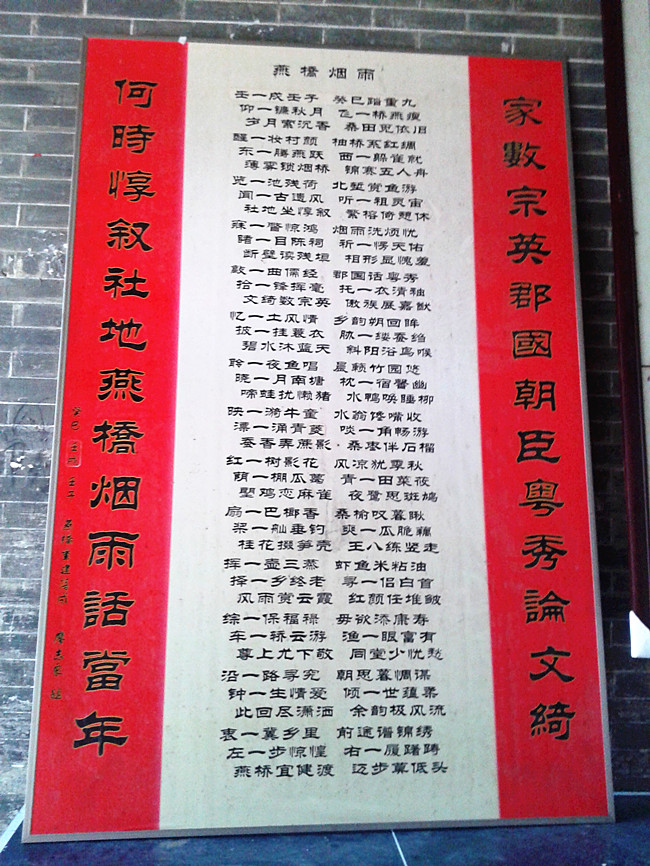 家數宗英郡國朝臣粤秀論文綺
燕橋烟雨
壬一成壬子 癸巳踏重九
仰一镰秋月 飞一桥燕瘦
岁月常沉香 桑田觅依旧
醒一妆村颜 柚桥系红绸
东一腾燕跃 西一躲雀就
薄雾锁烟桥 锦赛五人舟
览一池残荷 北堑赏鱼游
闻一古遗风 听一祖灵宙
社地坐惇叙 繁榕倚憩休
寐一瞥惊鸿 烟雨洗烦忧
睹一目陈祠 祈一愣天佑
断壁读残垣 相形显愧羞
敲一曲儒经 郡国话粤秀
拾一锋挥毫 托一衣清秞
文绮数宗英 傲族展嘉猷
忆一土风情 乡韵朔回眸
披一挂蓑衣 胁一绥蚕绉
碧水沐蓝天 斜阳浴鸟喉
聆一夜鱼唱 晨赖竹园悠
晓一月南塘 枕一宿馨幽
啼蛙扰懒猪 水鸭唤睡柳
映一漪牛童 水翁馋嘴收
漂一涌青菱 啖一角畅游
蚕香弄蔗影 桑枣伴石榴
红一树影花 风凉犹覃秋
荫一棚瓜蔓 青一田菜莜
墅鸡恋麻雀 夜鹭思斑鸠
扇一巴椰香 桑榆叹暮瞅
架一舢垂钓 爽一瓜脆藕
桂花掇笋壳 王八练竖走
挥一壶三蒸 虾鱼米粘油
择一乡终老 寻一侣白首
风雨赏云霞 红颜任堆皱
综一保福禄 毋欲添康寿
车一轿云游 渔一眼富有
尊上尤下敬 同堂少忧愁
沿一路寻宠 朝思暮惆谋
钟一生情爱 倾一世蕴柔
此回尽潇洒 余韵极风流
衷一冀乡里 前途谱锦绣
左一步惊惶 右一履踌躇
燕桥宜健渡 迈步冀低头
何時惇叙社地燕橋烟雨話當年